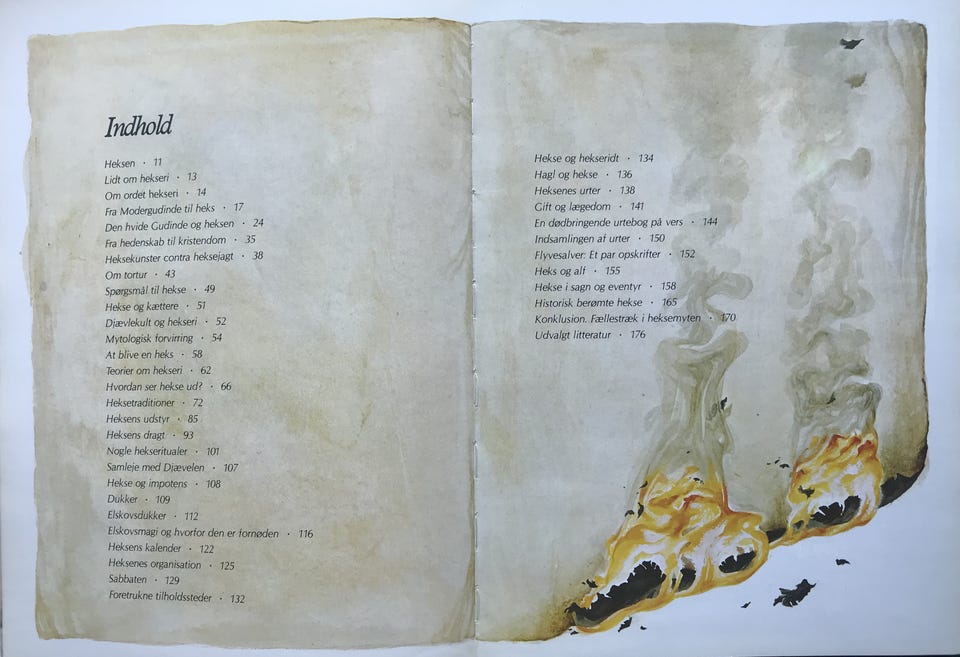 Indhold
Heksen · 11
Lidt om hekseri · 13
Om ordet hekseri · 14
Fra Modergudinde til heks · 17
Den hvide Gudinde og heksen · 24
Fra hedenskab til kristendom · 35
Heksekunster contra heksejagt · 38
Om tortur · 43
Spørgsmål til hekse · 49
Hekse og kættere · 51
Djævlekult og hekseri · 52
Mytologisk forvirring · 54
At blive en heks · 58
Teorier om hekseri · 62
Hvordan ser hekse ud? · 66
Heksetraditioner · 72
Heksens udstyr · 85
Heksens dragt · 93
Nogle hekseritualer · 101
Samleje med Djævelen · 107
Hekse og impotens · 108
Dukker · 109
Elskovsdukker · 112
Elskovsmagi og hvorfor den er fornøden · 116
Heksens kalender · 122
Heksenes organisation · 125
Sabbaten · 129
Foretrukne tilholdssteder · 132
Hekse og hekseridt · 134
Hagl og hekse · 136
Heksenes urter · 138
Gift og lægedom · 141
En dødbringende urtebog på vers · 144
Indsamlingen af urter · 150
Flyvesalver: Et par opskrifter · 152
Heks og alf · 155
Hekse i sagn og eventyr · 158
Historisk berømte hekse · 165
Konklusion. Fællestræk i heksemyten · 170
Udvalgt litteratur · 176